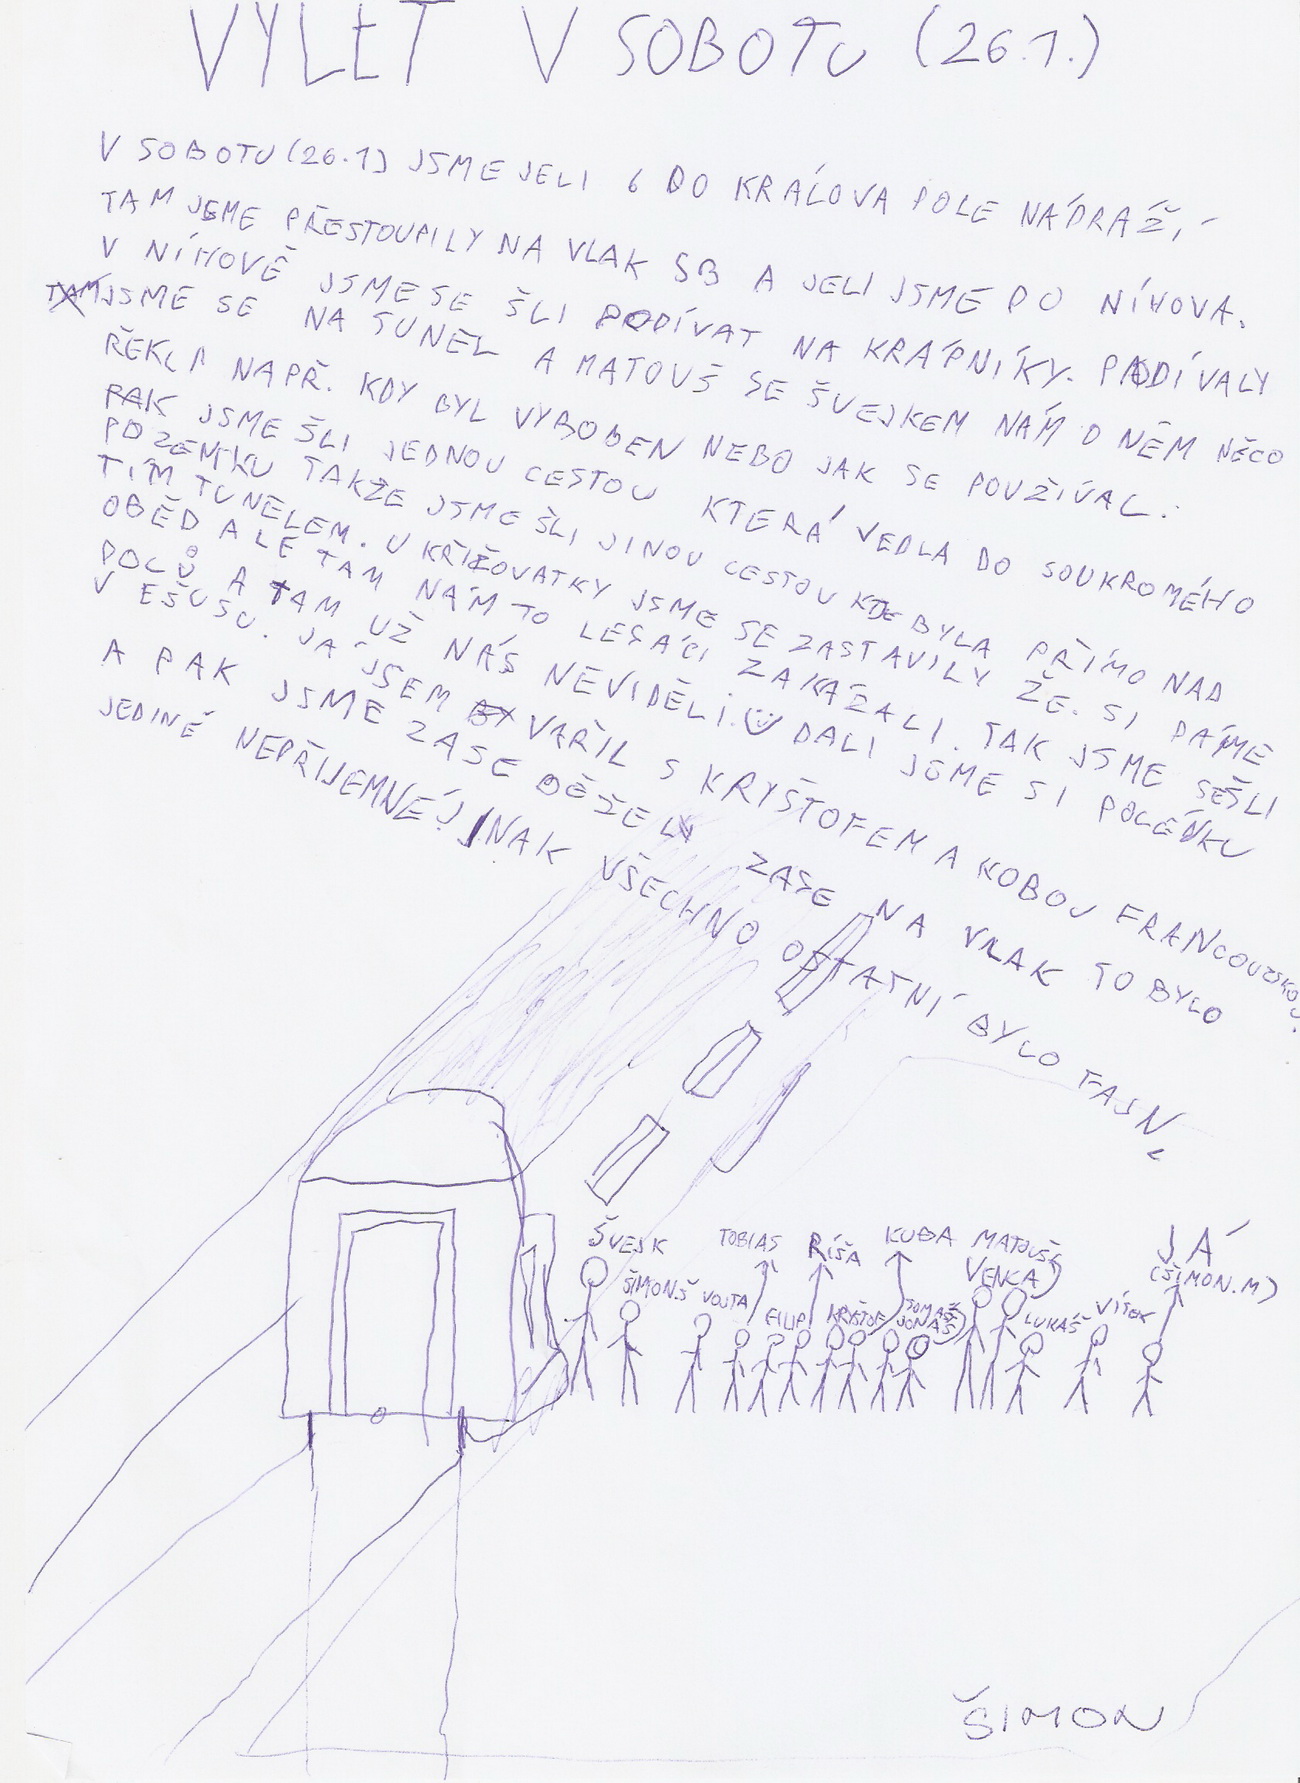 VÝLET V SOBOTU (26.1.)
V SOBOTU (26.1) JSME JELI 6 DO KRÁLOVA POLE NÁDRAŽ,Í
TAM JSME PŘESTOUPILY NA VLAK SB A JELI JSME DO NÍHOVA.
V NÍHOVĚ JSME SE ŠLI PODÍVAT NA KRÁPNÍKY. PODÍVALY
JSME SE NA TUNEL A MATOUŠ SE ŠVEJKEM NÁM O NĚM NĚCO
ŘEKLI NAPŘ. KDY BYL VYBODEN NEBO JAK SE POUŽÍVAL.
PAK JSME ŠLI JEDNOU CESTOU KTERÁ VEDLA DO SOUKROMÉHO
POZEMKU TAKŽE JSME ŠLI JINOU CESTOU KDE BYLA PŘÍMO NAD
TÍM TUNELEM. U KŘIŽOVATKY JSME SE ZASTAVILY ŽE. SI DÁME
OBĚD ALE TAM NÁM TO LESÁCI ZAKÁZALI. TAK JSME SEŠLI
DOLŮ A TAM UŽ NÁS NEVIDĚLI. DALI JSME SI POLÉVKU
V EŠUSU. JÁ JSEM VAŘIL S KRYŠTOFEM A KOBOJ FRANCOUZSKOU.
A PAK JSME ZASE BĚŽELI ZASE NA VLAK TO BYLO
JEDINÉ NEPŘÍJEMNÉ! JINAK VŠECHNO OSTATNÍ BYLO FAJN.
ŠVEJK TOBIAS RÍŠA KUBA MATOUŠ JÁ
ŠIMON.Š VOJTA FILIP KRYŠTOF TOMÁŠ JONÁŠ VENCA LUKÁŠ VÍTEK (ŠIMON.M)
ŠIMON